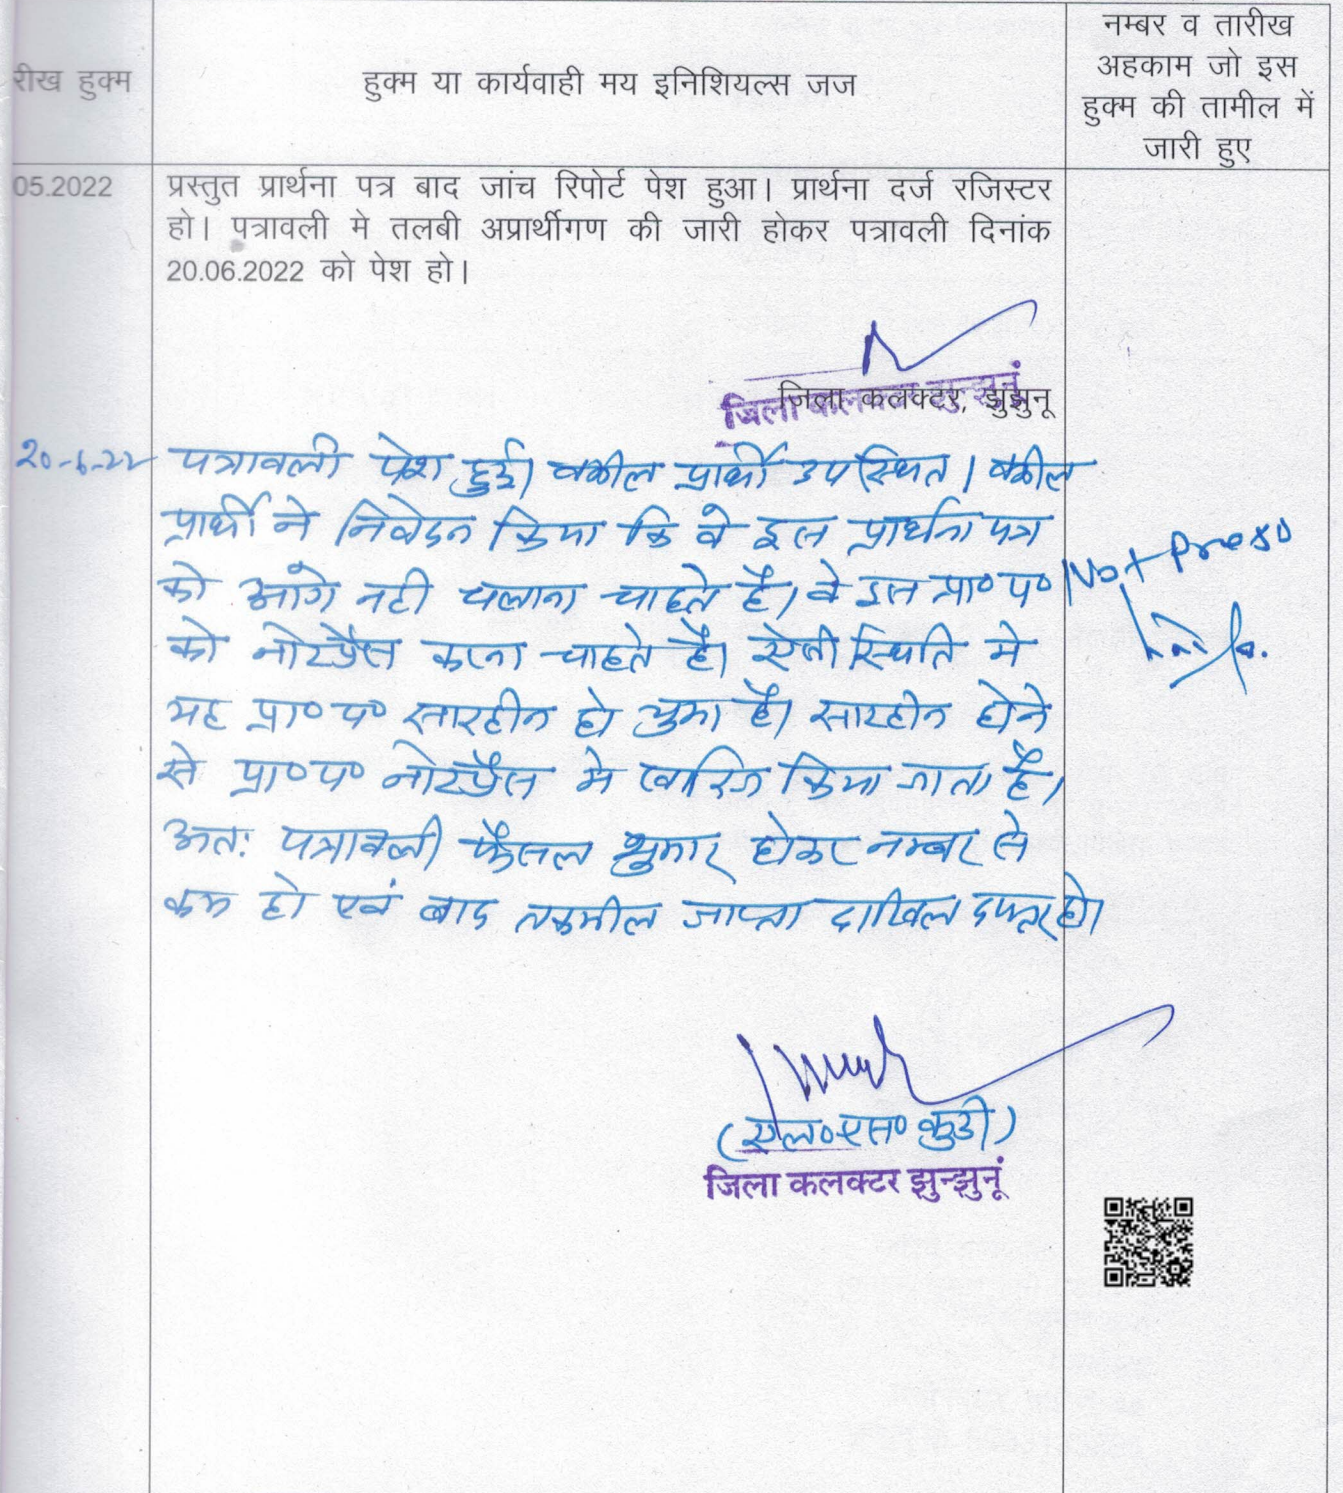 रीख हुक्म
हुक्म या कार्यवाही मय इनिशियल्स जज
नम्बर व तारीख
अहकाम जो इस
हुक्म की तामील में
जारी हुए
05.2022
प्रस्तुत प्रार्थना पत्र बाद जांच रिपोर्ट पेश हुआ। प्रार्थना दर्ज रजिस्टर
हो। पत्रावली मे तलबी अप्रार्थीगण की जारी होकर पत्रावली दिनांक
20.06.2022 को पेश हो।
जिला कलक्टर, झुझुनू
जिला कलक्टर झुन्झुनूं
20-6-22
पत्रावली पेश हुई। वकील प्रार्थी उपस्थित। वकील
प्रार्थी ने निवेदन किया कि वे इस प्रार्थना पत्र
को आगे नही चलाना चाहते है। वे इस प्रा० प०
Not Press
को नोटप्रैस करना चाहते है। ऐसी स्थिति मे
यह प्रा० प० सारहीन हो चुका है। सारहीन होने
से प्रा० प० नोटप्रैस मे खारिज किया जाता है।
अतः पत्रावली फैसल शुमार होकर नम्बर से
कम हो एवं बाद तकमील जाप्ता दाखिल दफ्तर हो।
(एल० एस० कुडी)
जिला कलक्टर झुन्झुनूं